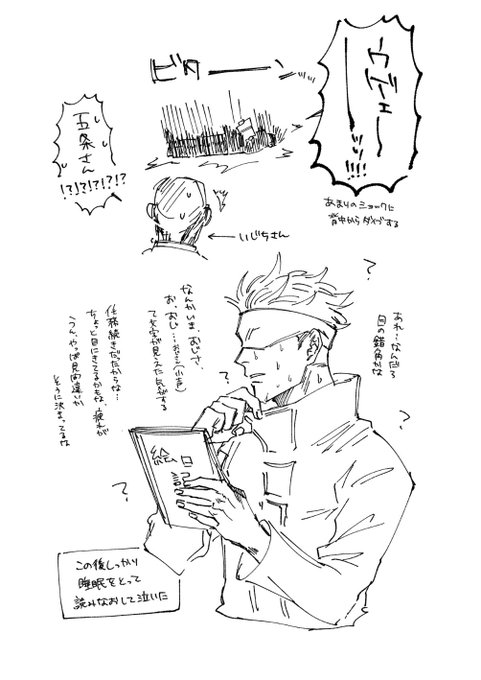 ウゲェーーッッ!!!
ビターーーンッ
五条さん
!?!?!?!?
あまりのショックに
背中からダイブする
←いじちさん
?
あれ…なんだろ
目の錯角かな
なんかいま、おじさ、
お、おじ…おじ…(小声)
て文字が見えた気がする
任務続きだったからな…
ちょっと目にきてるかもな、疲れが
うん、やっぱ見間違いか
そうに決まってるな
?
?
?
絵日記
この後しっかり
睡眠をとって
読みなおして泣いた